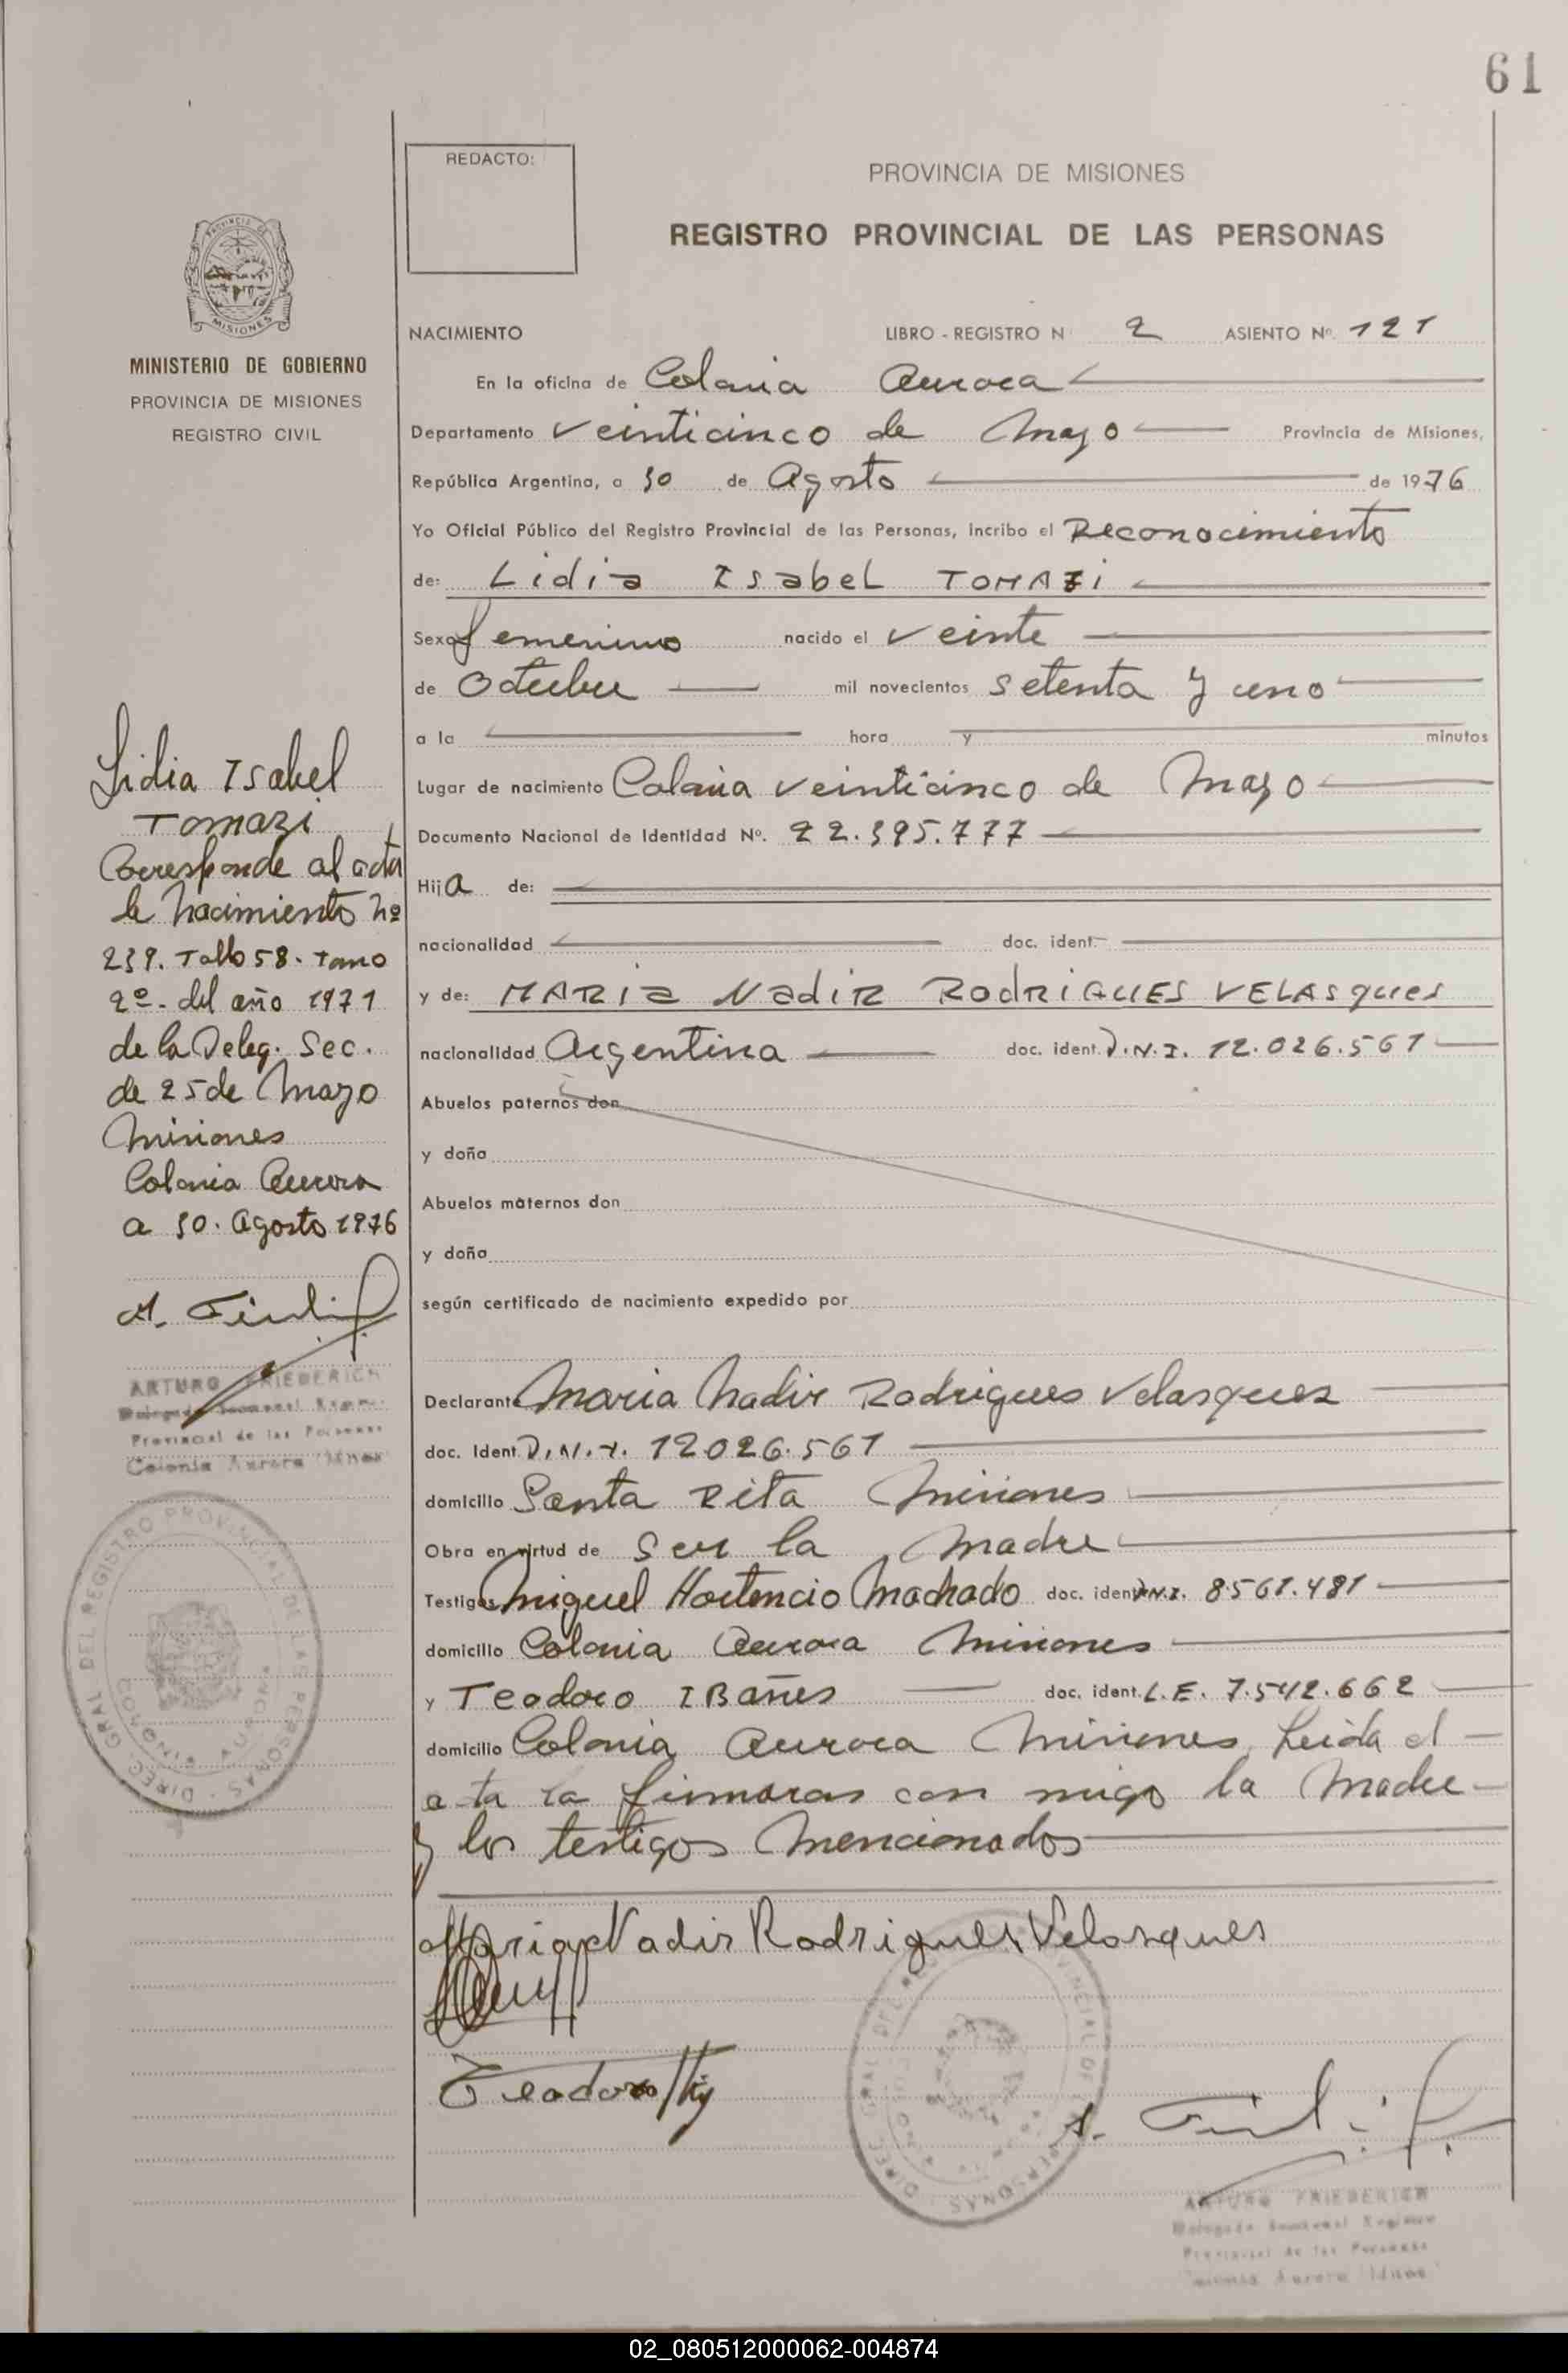 61
REDACTO:
PROVINCIA DE MISIONES
REGISTRO PROVINCIAL DE LAS PERSONAS
PROVINCIA DE
MISIONES
MINISTERIO DE GOBIERNO
PROVINCIA DE MISIONES
REGISTRO CIVIL
NACIMIENTO LIBRO - REGISTRO N 2 ASIENTO Nº. 121
En la oficina de Colonia Aurora
Departamento Veinticinco de Mayo Provincia de Misiones,
República Argentina, a 30 de Agosto de 1976
Yo Oficial Público del Registro Provincial de las Personas, incribo el Reconocimiento
de: Lidia Isabel TOMAZi
Sexo femenino nacido el veinte
de Octubre mil novecientos setenta y uno
a la hora y minutos
Lugar de nacimiento Colonia veinticinco de Mayo
Documento Nacional de Identidad Nº. 22.395.777
Hija de:
nacionalidad doc. ident.
y de: MARIA NadiR RodRiGUES VELASques
nacionalidad Argentina doc. ident. D.N.I. 12.026.561
Abuelos paternos don
y doña
Abuelos maternos don
y doña
según certificado de nacimiento expedido por
Declarante Maria Nadir Rodrigues Velasques
doc. Ident. D.N.I. 12026.561
domicilio Santa Rita Misiones
Obra en virtud de Ser la Madre
Testigos Miguel Hortencio Machado doc. ident D.N.I. 8.561.481
domicilio Colonia Aurora Misiones
y Teodoro IBañes doc. ident. L.E. 7.542.662
domicilio Colonia Aurora Misiones Leida el
a ta la firmaran con migo la Madre
y los testigos Mencionados
Maria Nadir Rodrigues Velasques
Teodoro
Lidia Isabel
Tomazi
Corresponde al acta
de Nacimiento nº
239. Tallo 58. Tomo
2º. del año 1971
de la Deleg. Sec.
de 25 de Mayo
Misiones
Colonia Aurora
a 30. Agosto 1976
ARTURO FRIEDERICH
Provincial de las Personas
Colonia Aurora Mnes
DIREC. GRAL DEL REGISTRO PROVINCIAL DE LAS PERSONAS
AURORA
ARTURO FRIEDERICH
Provincial de las Personas
Colonia Aurora
02_080512000062-004874